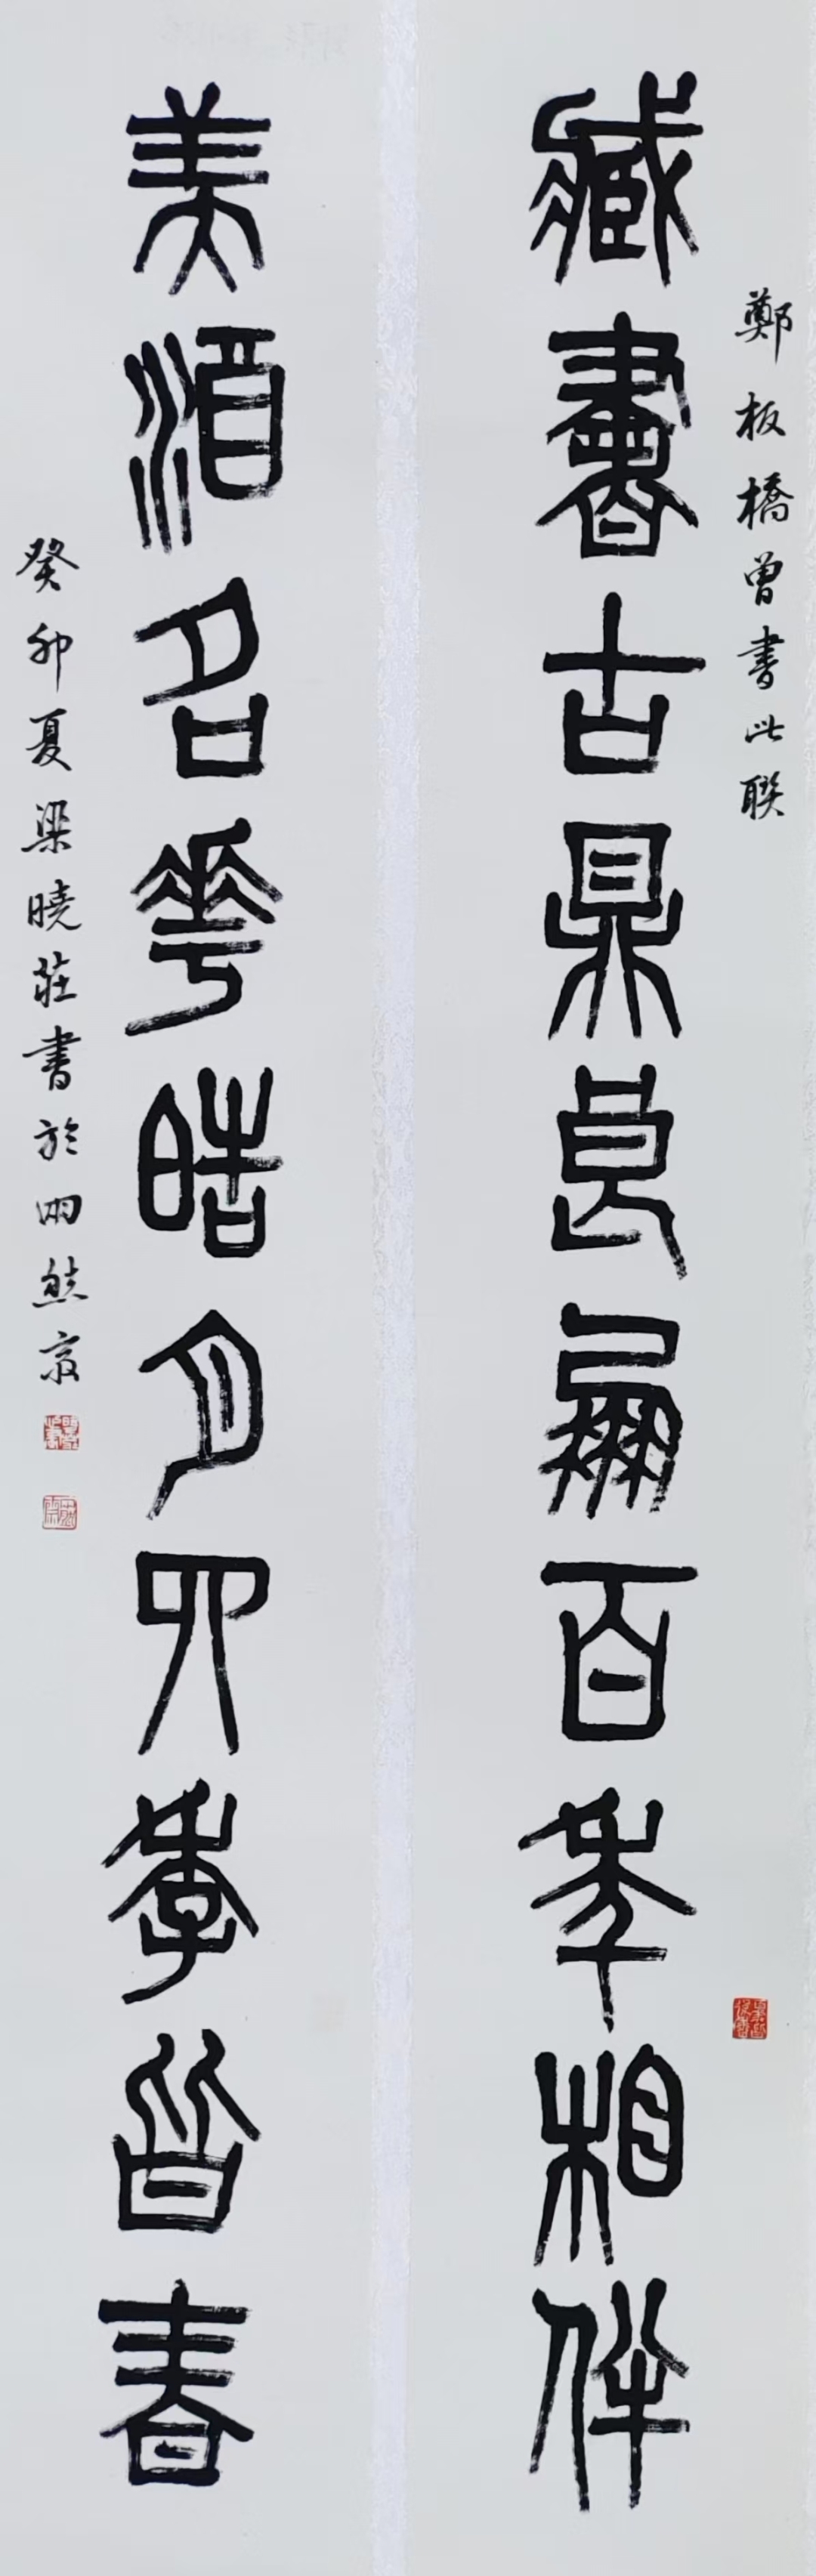 鄭板橋曾書此聯
藏書古鼎良朋百年相伴
美酒名花皓月四季皆春
癸卯夏梁曉莊書於冏然